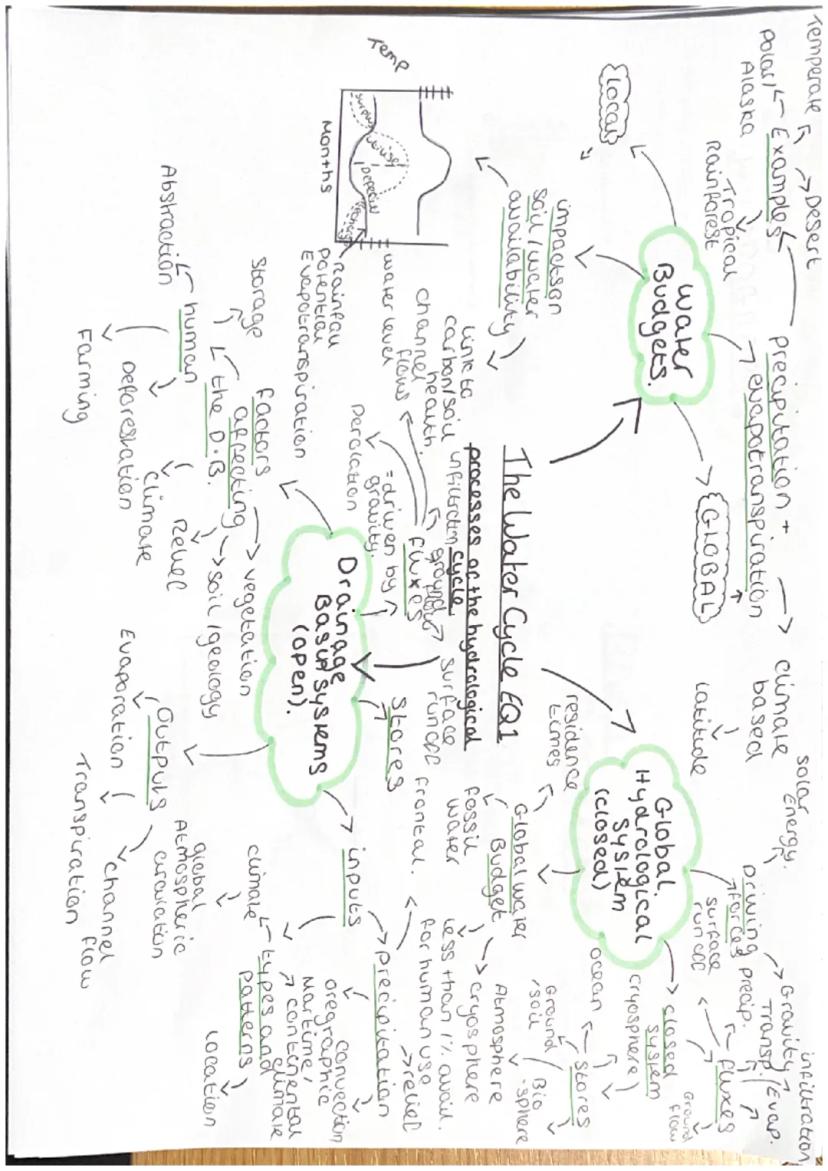 The Water Cycle EQ1
processes of the hydrological
cycle
Water
Budgets.
LOCAL
GLOBAL
precipitation +
evapotranspiration
Examples
Temperate
Desert
Polar/
Alaska
Tropical
Rainforest
climate
based
latitude
impacts on
soil/water
availability
link to
carbon/soil
health
Temp
Months
surplus
utilise
Deficit
recharge
Rainfall
Potential
Evapotranspiration
water level
Global
Hydrological
System
(closed)
Driving
forces
Solar
Energy.
Gravity
closed
system
fluxes
surface
runoff
precip.
Transp./Evap.
infiltration
Ground
flow
stores
ocean
cryosphere
Ground
/soil
Bio
-sphere
Atmosphere
Global water
Budget
residence
times
fossil
water
cryosphere
less than 1% avail.
for human use
Drainage
Basin Systems
(open).
fluxes
= driven by
gravity.
channel
flow
infiltration
ground flow
Percolation
surface
runoff
stores
inputs
precipitation
frontal.
relief
convection
oregraphic
types and
patterns
climate
Maritime/
continental
climate
location
global
Atmospheric
circulation
Outputs
Evaporation
Transpiration
channel
flow
factors
affecting
the D.B.
vegetation
soil/geology
Relief
Climate
storage
human
Abstraction
Deforestation
Farming